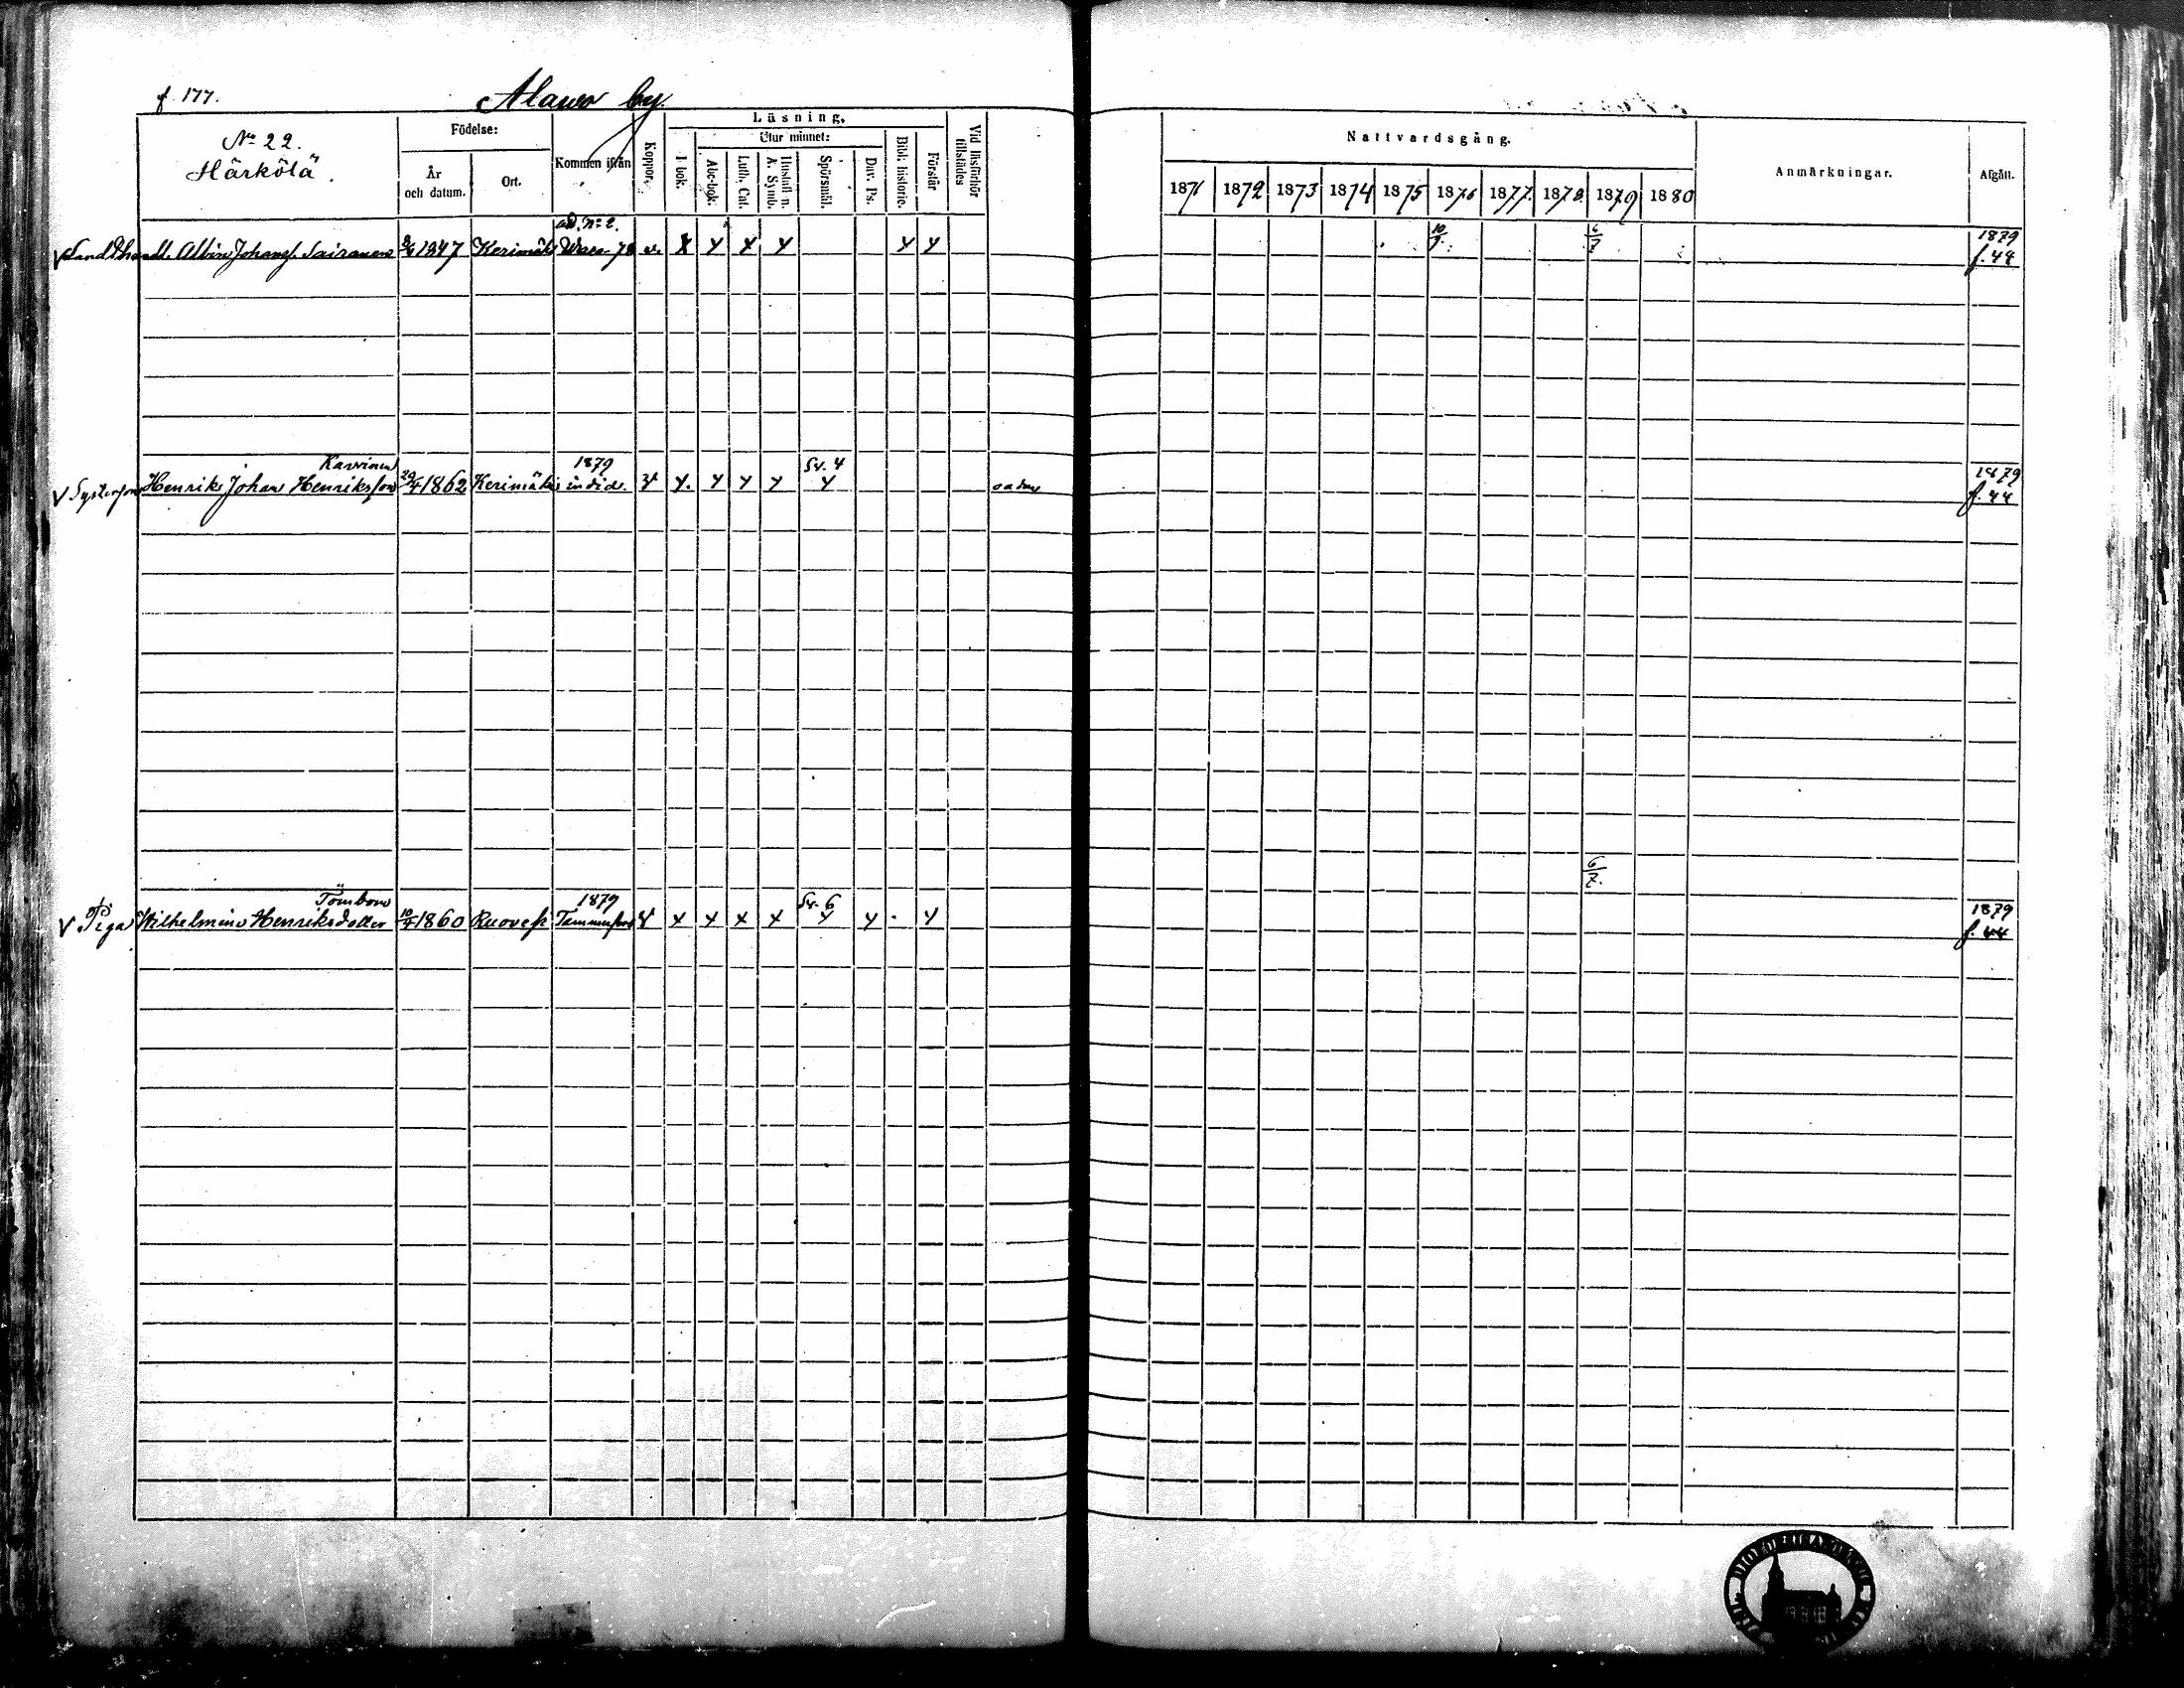 f. 177. Alavo by.
No 22.
Härkölä.
Födelse:
År och datum.
Ort.
Kommen ifrån
Koppor.
Läsning.
I bok.
Utur minnet:
Abc-bok.
Luth. Cat.
Hustafl. n. A. Symb.
Spörsmål.
Dav. Ps.
Bibl. historie.
Förstår
Vid läsförhör tillstädes
Nattvardsgång.
1871 1872 1873 1874 1875 1876 1877. 1878. 1879 1880
Anmärkningar.
Afgått.
ad. No 2. 10/9. 6/7 1879
Landthandl. Albin Johansf. Sairanen 1847 Kerimäki Wasa 78 v. X Y X Y Y Y f. 44
Kavrinen 1879 Sv. 4 1879
V Systerson Henrik Johan Henriksson 29/4 1862 Kerimäki indid. v Y. Y Y Y Y f. 44
6/7.
Tömbom 1879 Sv. 6 1879
V Piga Wilhelmina Henriksdotter 10/4 1860 Ruovesi Tammerfors v X X X X Y Y . Y f. 44